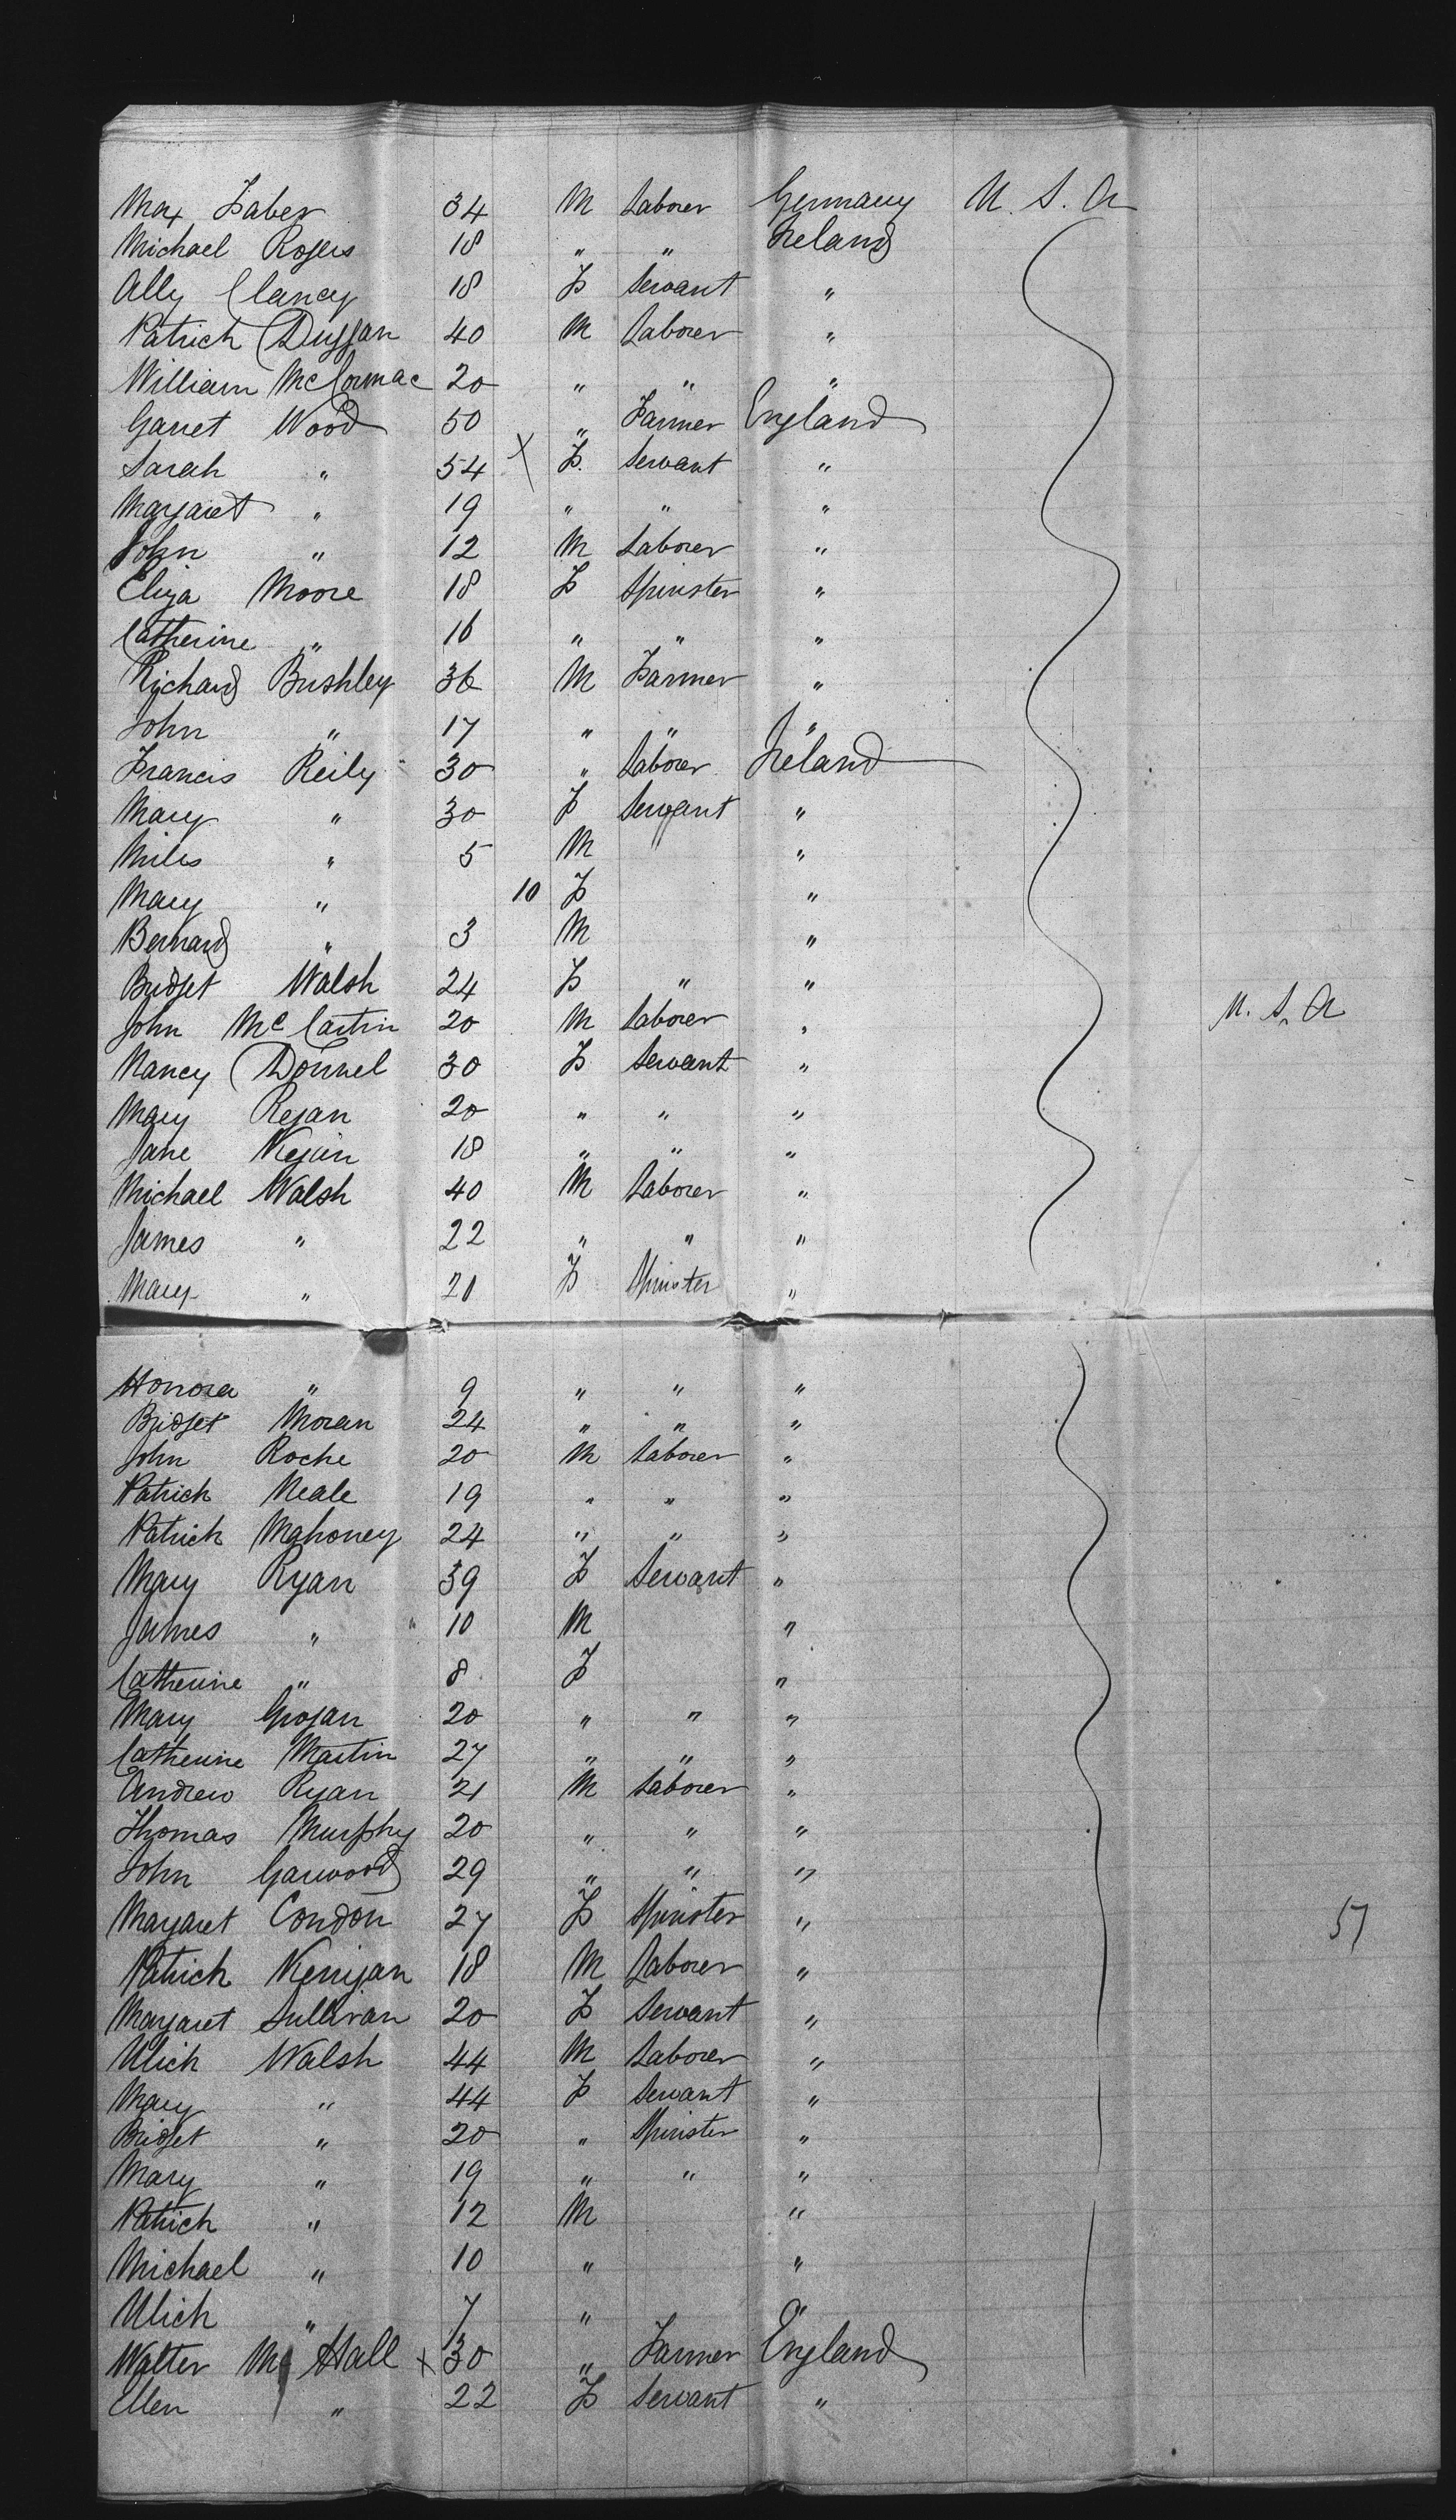 Max Faber 34 M Laborer Germany U. S. A
Michael Rogers 18 " " Ireland
Ally Clancy 18 F Servant "
Patrick Duggan 40 M Laborer "
William McCormac 20 " " "
Garret Wood 50 " Farmer England
Sarah " 54 X F. Servant "
Margaret " 19 " " "
John " 12 M Laborer "
Eliza Moore 18 F Spinster "
Catherine " 16 " " "
Richard Bushley 36 M Farmer "
John " 17 " " "
Francis Reily 30 " Laborer Ireland
Mary " 30 F Servant "
Miles " 5 M "
Mary " 10 F "
Bernard " 3 M "
Bridget Walsh 24 F " "
John McCartin 20 M Laborer " U. S. A
Nancy Donnel 30 F Servant "
Mary Regan 20 " " "
Jane 18 " " "
Michael Walsh 40 M Laborer "
James " 22 " " "
Mary " 21 F Spinster "
Honora " 9 " " "
Bridget Moran 24 " " "
John Roche 20 M Laborer "
Patrick Neale 19 " " "
Patrick Mahoney 24 " " "
Mary Ryan 39 F Servant "
James " 10 M "
Catherine " 8 F "
Mary Grogan 20 " " "
Catherine Martin 27 " " "
Andrew Ryan 21 M Laborer "
Thomas Murphy 20 " " "
John Garwood 29 " " "
Margaret Condon 27 F Spinster " 57
Patrick Kerrigan 18 M Laborer "
Margaret Sullivan 20 F Servant "
Ulick Walsh 44 M Laborer "
Mary " 44 F Servant "
Bridget " 20 " Spinster "
Mary " 19 " " "
Patrick " 12 M "
Michael " 10 " "
Ulick " 7 " "
Walter Hall X 30 " Farmer England
Ellen " 22 F Servant "